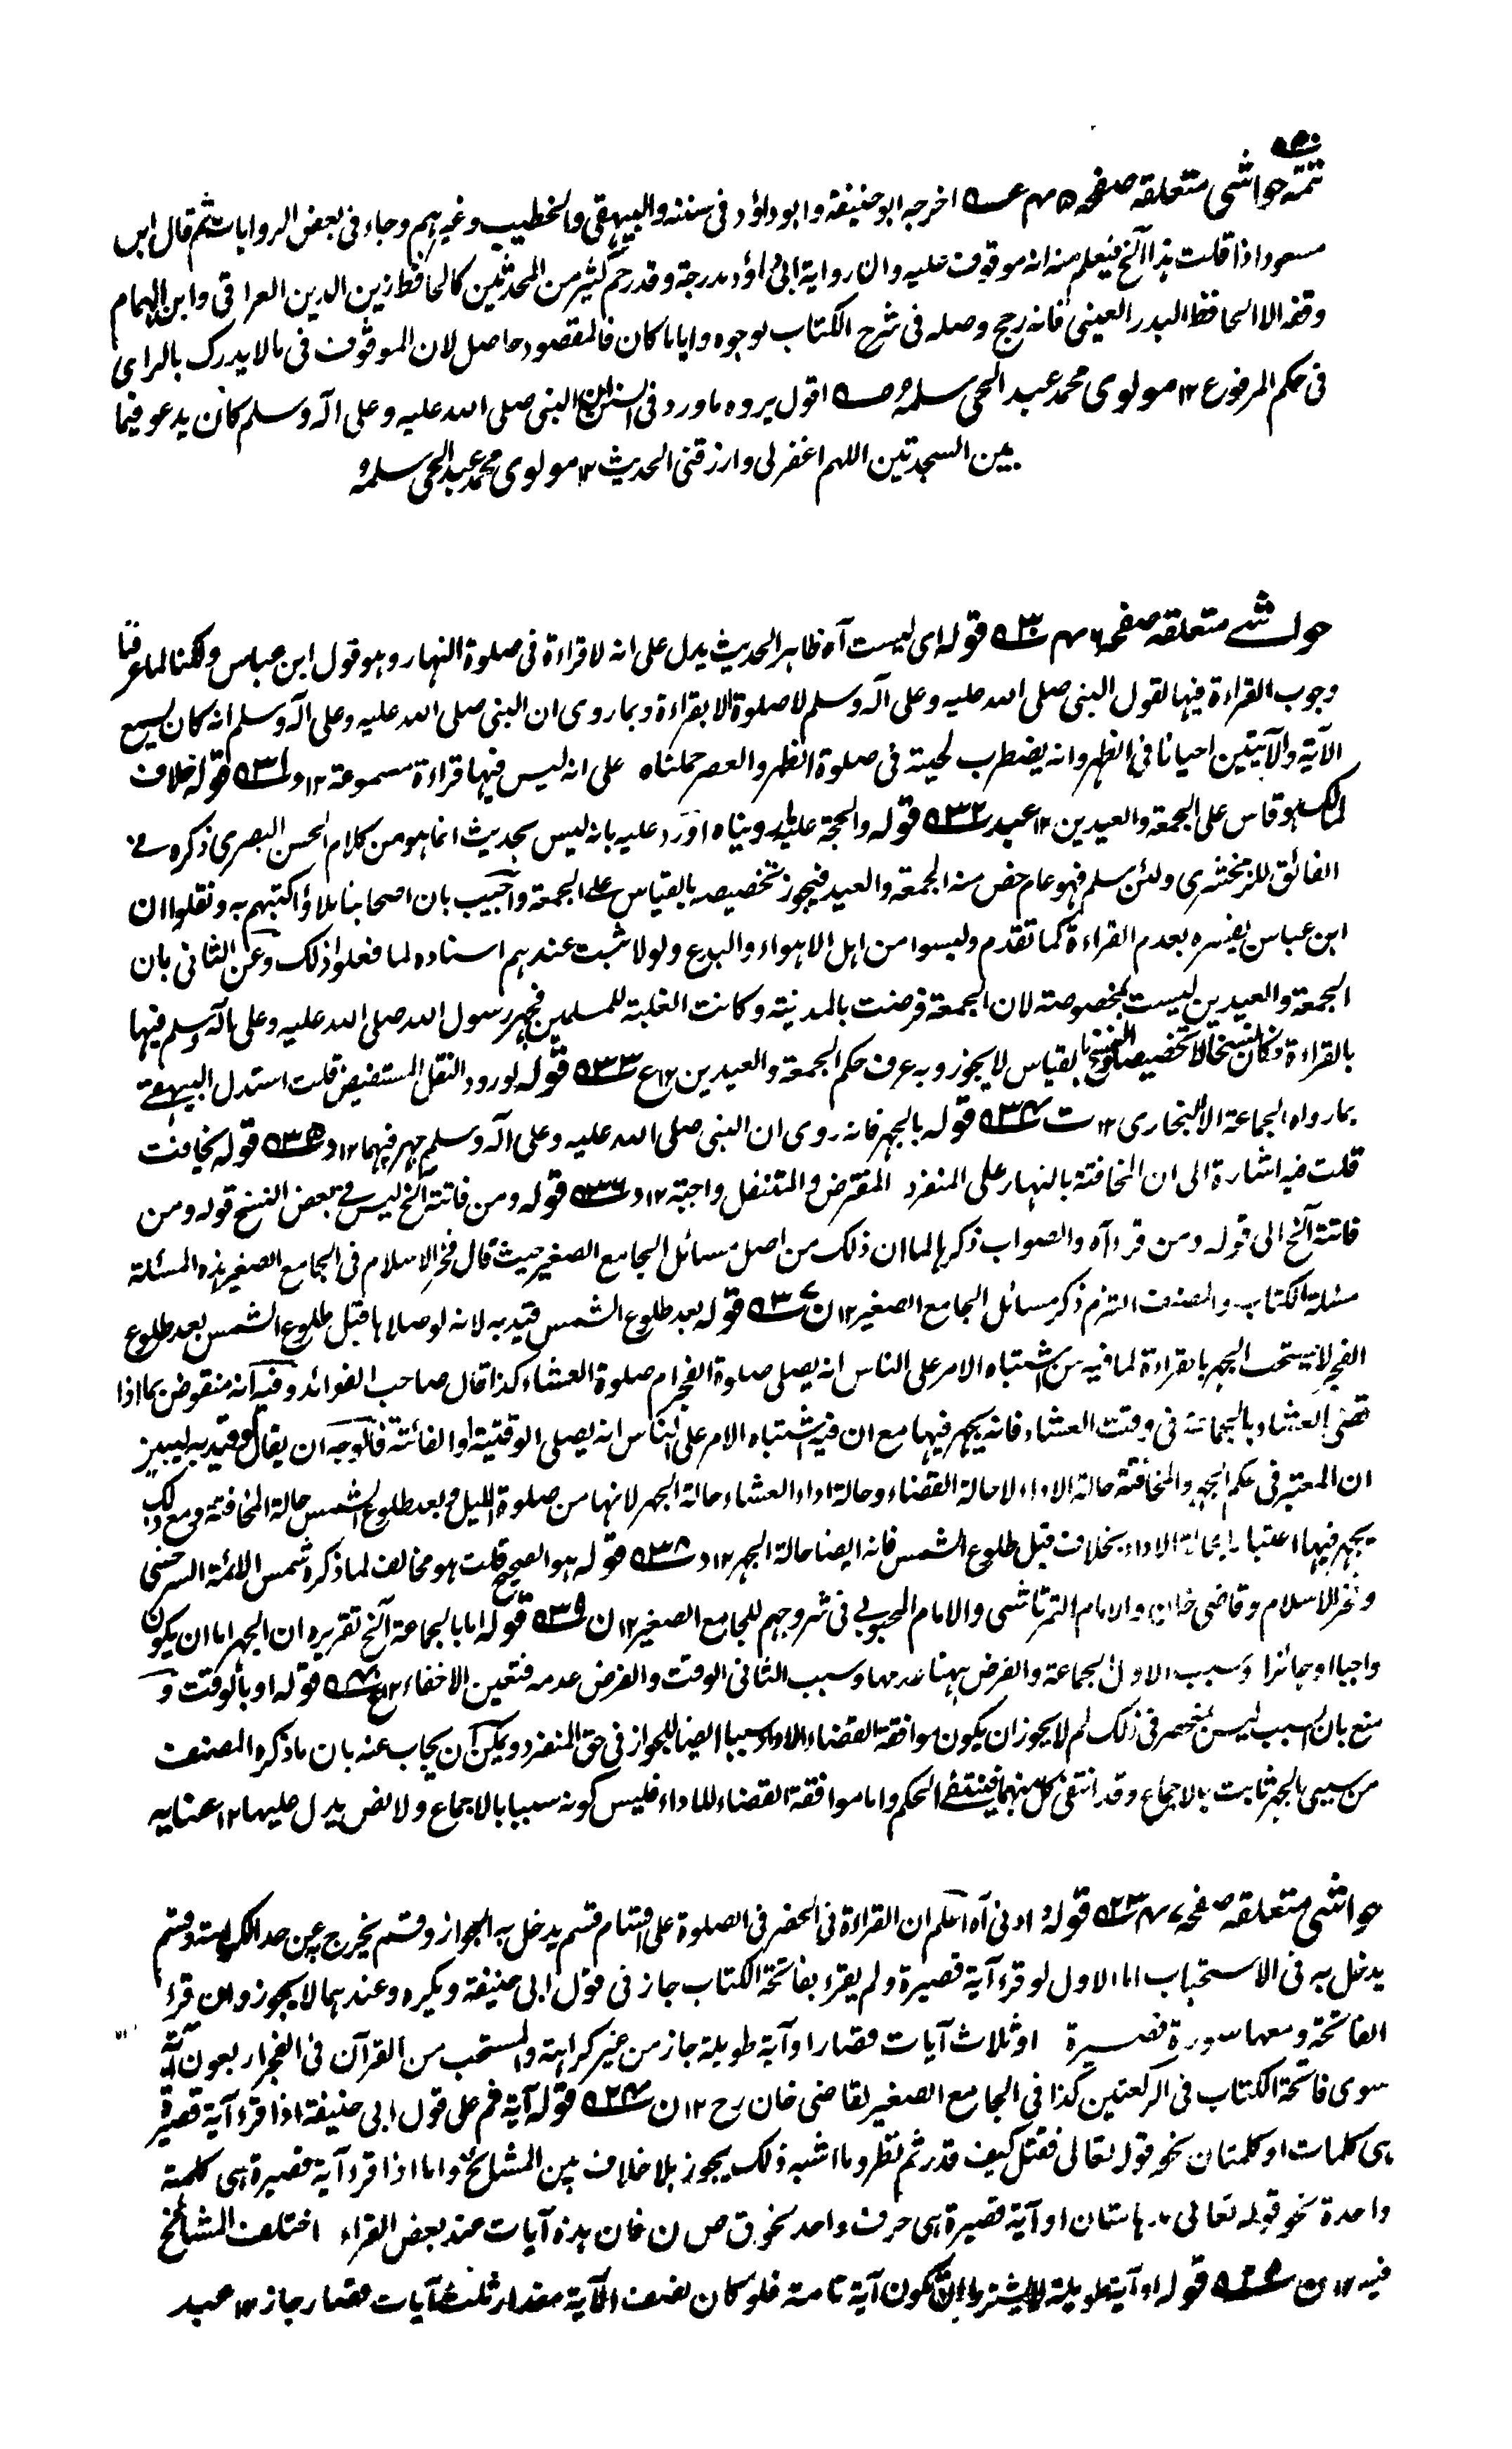 تتمة حواشى متعلقه صفحه ۵۲۰ اخرجه ابو حنيفة وابو داؤد فى سننه والبيهقى والخطيب وغيرهم وجاء فى بعض الروايات ثم قال ابن
مسعود اذا قلت هذا آلخ فيعلم منه انه موقوف عليه وان رواية ابى داؤد مدرجة وقد رجح كثير من المحدثين كالحافظ زين الدين العراقى وابن الهمام
وقفه الا الحافظ البدر العينى فانه رجح وصله فى شرح الكتاب لوجوه واياما كان فالمقصود حاصل لان الموقوف فى مالا يدرك بالراى
فى حكم المرفوع ۱۲ مولوى محمد عبد الحى سلمه اقول يروه ما ورد فى السنن ان النبى صلى الله عليه وعلى آله وسلم كان يدعو فيما
بين السجدتين اللهم اغفر لى وارزقنى الحديث ۱۲ مولوى محمد عبد الحى سلمه
حواشے متعلقه صفحه ۵۳۰ قوله اى ليست آه ظاهر الحديث يدل على انه لا قراءة فى صلوة النهار وهو قول ابن عباس ولكنا لما عرفنا
وجوب القراءة فيها لقول النبى صلى الله عليه وعلى آله وسلم لا صلوة الا بقراءة وبما روى ان النبى صلى الله عليه وعلى آله وسلم انه كان يسمع
الآية والآيتين احيانا فى الظهر وانه يضطرب لحيته فى صلوة الظهر والعصر حملناه على انه ليس فيها قراءة مسموعة ۱۲ د ۵۳۱ قوله خلاف
لمالك هو قاس على الجمعة والعيدين ۱۲ عبد ۵۳۲ قوله والحجة عليه ما رويناه اورد عليه بانه ليس بحديث انما هو من كلام الحسن البصرى ذكره فے
الفائق للزمخشرى ولئن سلم فهو عام خص منه الجمعة والعيد فيجوز تخصيصه بالقياس على الجمعة واجيب بان اصحابنا ملاؤا كتبهم به ونقلوا ان
ابن عباس يفسره بعدم القراءة كما تقدم وليسوا من اهل الاهواء والبدع ولولا ثبت عندهم اسناده لما فعلوا ذلك وعن الثانى بان
الجمعة والعيدين ليست بمخصوصة لان الجمعة فرضت بالمدينة وكانت الغلبة للمسلمين فجهر رسول الله صلى الله عليه وعلى آله وسلم فيها
بالقراءة وكان نسخا لا تخصيصا والنسخ بالقياس لا يجوز وبه عرف حكم الجمعة والعيدين ۱۲ ع ۵۳۳ قوله لورود النقل المستفيض قلت استدل البيهقے
بما رواه الجماعة الا البخارى ۱۲ ت ۵۳۴ قوله بالجهر فانه روى ان النبى صلى الله عليه وعلى آله وسلم جهر فيهما ۱۲ د ۵۳۵ قوله يخافت
قلت فيه اشارة الى ان المخافتة بالنهار على المنفرد المفترض والمتنفل واجبة ۱۲ د ۵۳۶ قوله ومن فاتته آلخ ليس فے بعض النسخ قوله ومن
فاتته آلخ الى قوله ومن قرء آه والصواب ذكرها لما ان ذلك من اصل مسائل الجامع الصغير حيث قال فخر الاسلام فى الجامع الصغير هذه المسئلة
مسئلة الكتاب والمصنف التزم ذكر مسائل الجامع الصغير ۱۲ ن ۵۳۷ قوله بعد طلوع الشمس قيد به لانه لو صلاها قبل طلوع الشمس بعد طلوع
الفجر لا يستحب الجهر بالقراءة لما فيه من اشتباه الامر على الناس انه يصلى صلوة الفجر ام صلوة العشاء كذا قال صاحب الفوائد وفيه انه منقوض بما اذا
قضى العشاء بالجماعة فى وقت العشاء فانه يجهر فيها مع ان فيه اشتباه الامر على الناس انه يصلى الوقتية او الفائتة فالوجه ان يقال وقيد به ليبين
ان المعتبر فى حكم الجهر والمخافتة حالة الاداء لا حالة القضاء وحالة اداء العشاء حالة الجهر لانها من صلوة الليل وبعد طلوع الشمس حالة المخافتة ومع ذلك
يجهر فيها اعتبارا بحالة الاداء بخلاف قبل طلوع الشمس فانه ايضا حالة الجهر ۱۲ د ۵۳۸ قوله هو الصحيح قلت هو مخالف لما ذكره شمس الائمة السرخسى
وفخر الاسلام وقاضى خان والامام التمرتاشى والامام المحبوبى فى شروحهم للجامع الصغير ۱۲ ن ۵۳۹ قوله اما بالجماعة آلخ تقريره ان الجهر اما ان يكون
واجبا او جائزا وسبب الاول الجماعة والفرض ههنا عدمها وسبب الثانى الوقت والفرض عدمه فتعين الاخفاء ۱۲ ع ۵۴۰ قوله او بالوقت و
منع بان السبب ليس منحصر فى ذلك لم لا يجوز ان يكون موافقة القضاء الاداء سببا ايضا للجواز فى حق المنفرد ويمكن ان يجاب عنه بان ما ذكره المصنف
من سببى الجهر ثابت بالاجماع وقد انتفى كل منهما فينتفے الحكم واما موافقة القضاء للاداء فليس كونه سببا بالاجماع ولا نص يدل عليها ۱۲ عنايه
حواشى متعلقه صفحه ۵۲۳ قوله ادنى آه اعلم ان القراءة فى الحضر فى الصلوة على اقسام قسم يدخل به الجواز وقسم يخرج عن حد الكراهة وقسم
يدخل به فى الاستحباب اما الاول لو قرء آية قصيرة ولم يقرء بفاتحة الكتاب جاز فى قول ابى حنيفة ويكره وعندهما لا يجوز وان قرء
الفاتحة ومعها سورة قصيرة او ثلاث آيات قصار او آية طويلة جاز من غير كراهة والمستحب من القرآن فى الفجر اربعون آية
سوى فاتحة الكتاب فى الركعتين كذا فى الجامع الصغير لقاضى خان رح ۱۲ ن ۵۲۴ قوله آية فم على قول ابى حنيفة اذا قرء آية قصيرة
هى كلمات او كلمتان نحو قوله تعالى فقتل كيف قدر ثم نظر وما اشبه ذلك يجوز بلا خلاف بين المشائخ واما اذا قرء آية قصيرة هى كلمة
واحدة نحو قوله تعالى مدهامتان او آية قصيرة هى حرف واحد نحو ق ص ن فان هذه آيات عند بعض القراء اختلف المشائخ
فيه ۱۲ ن ۵۲۵ قوله او آية طويلة لا يشترط ان تكون آية تامة فلو كان نصف الآية مقدار ثلث آيات قصار جاز ۱۲ عبد